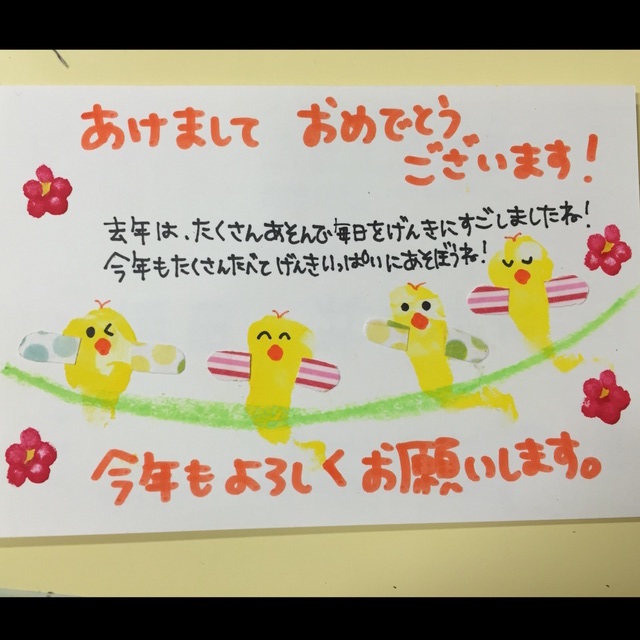 あけまして おめでとう
ございます!
去年は、たくさんあそんで毎日をげんきにすごしましたね!
今年もたくさんたべてげんきいっぱいにあそぼうね!
今年もよろしくお願いします。